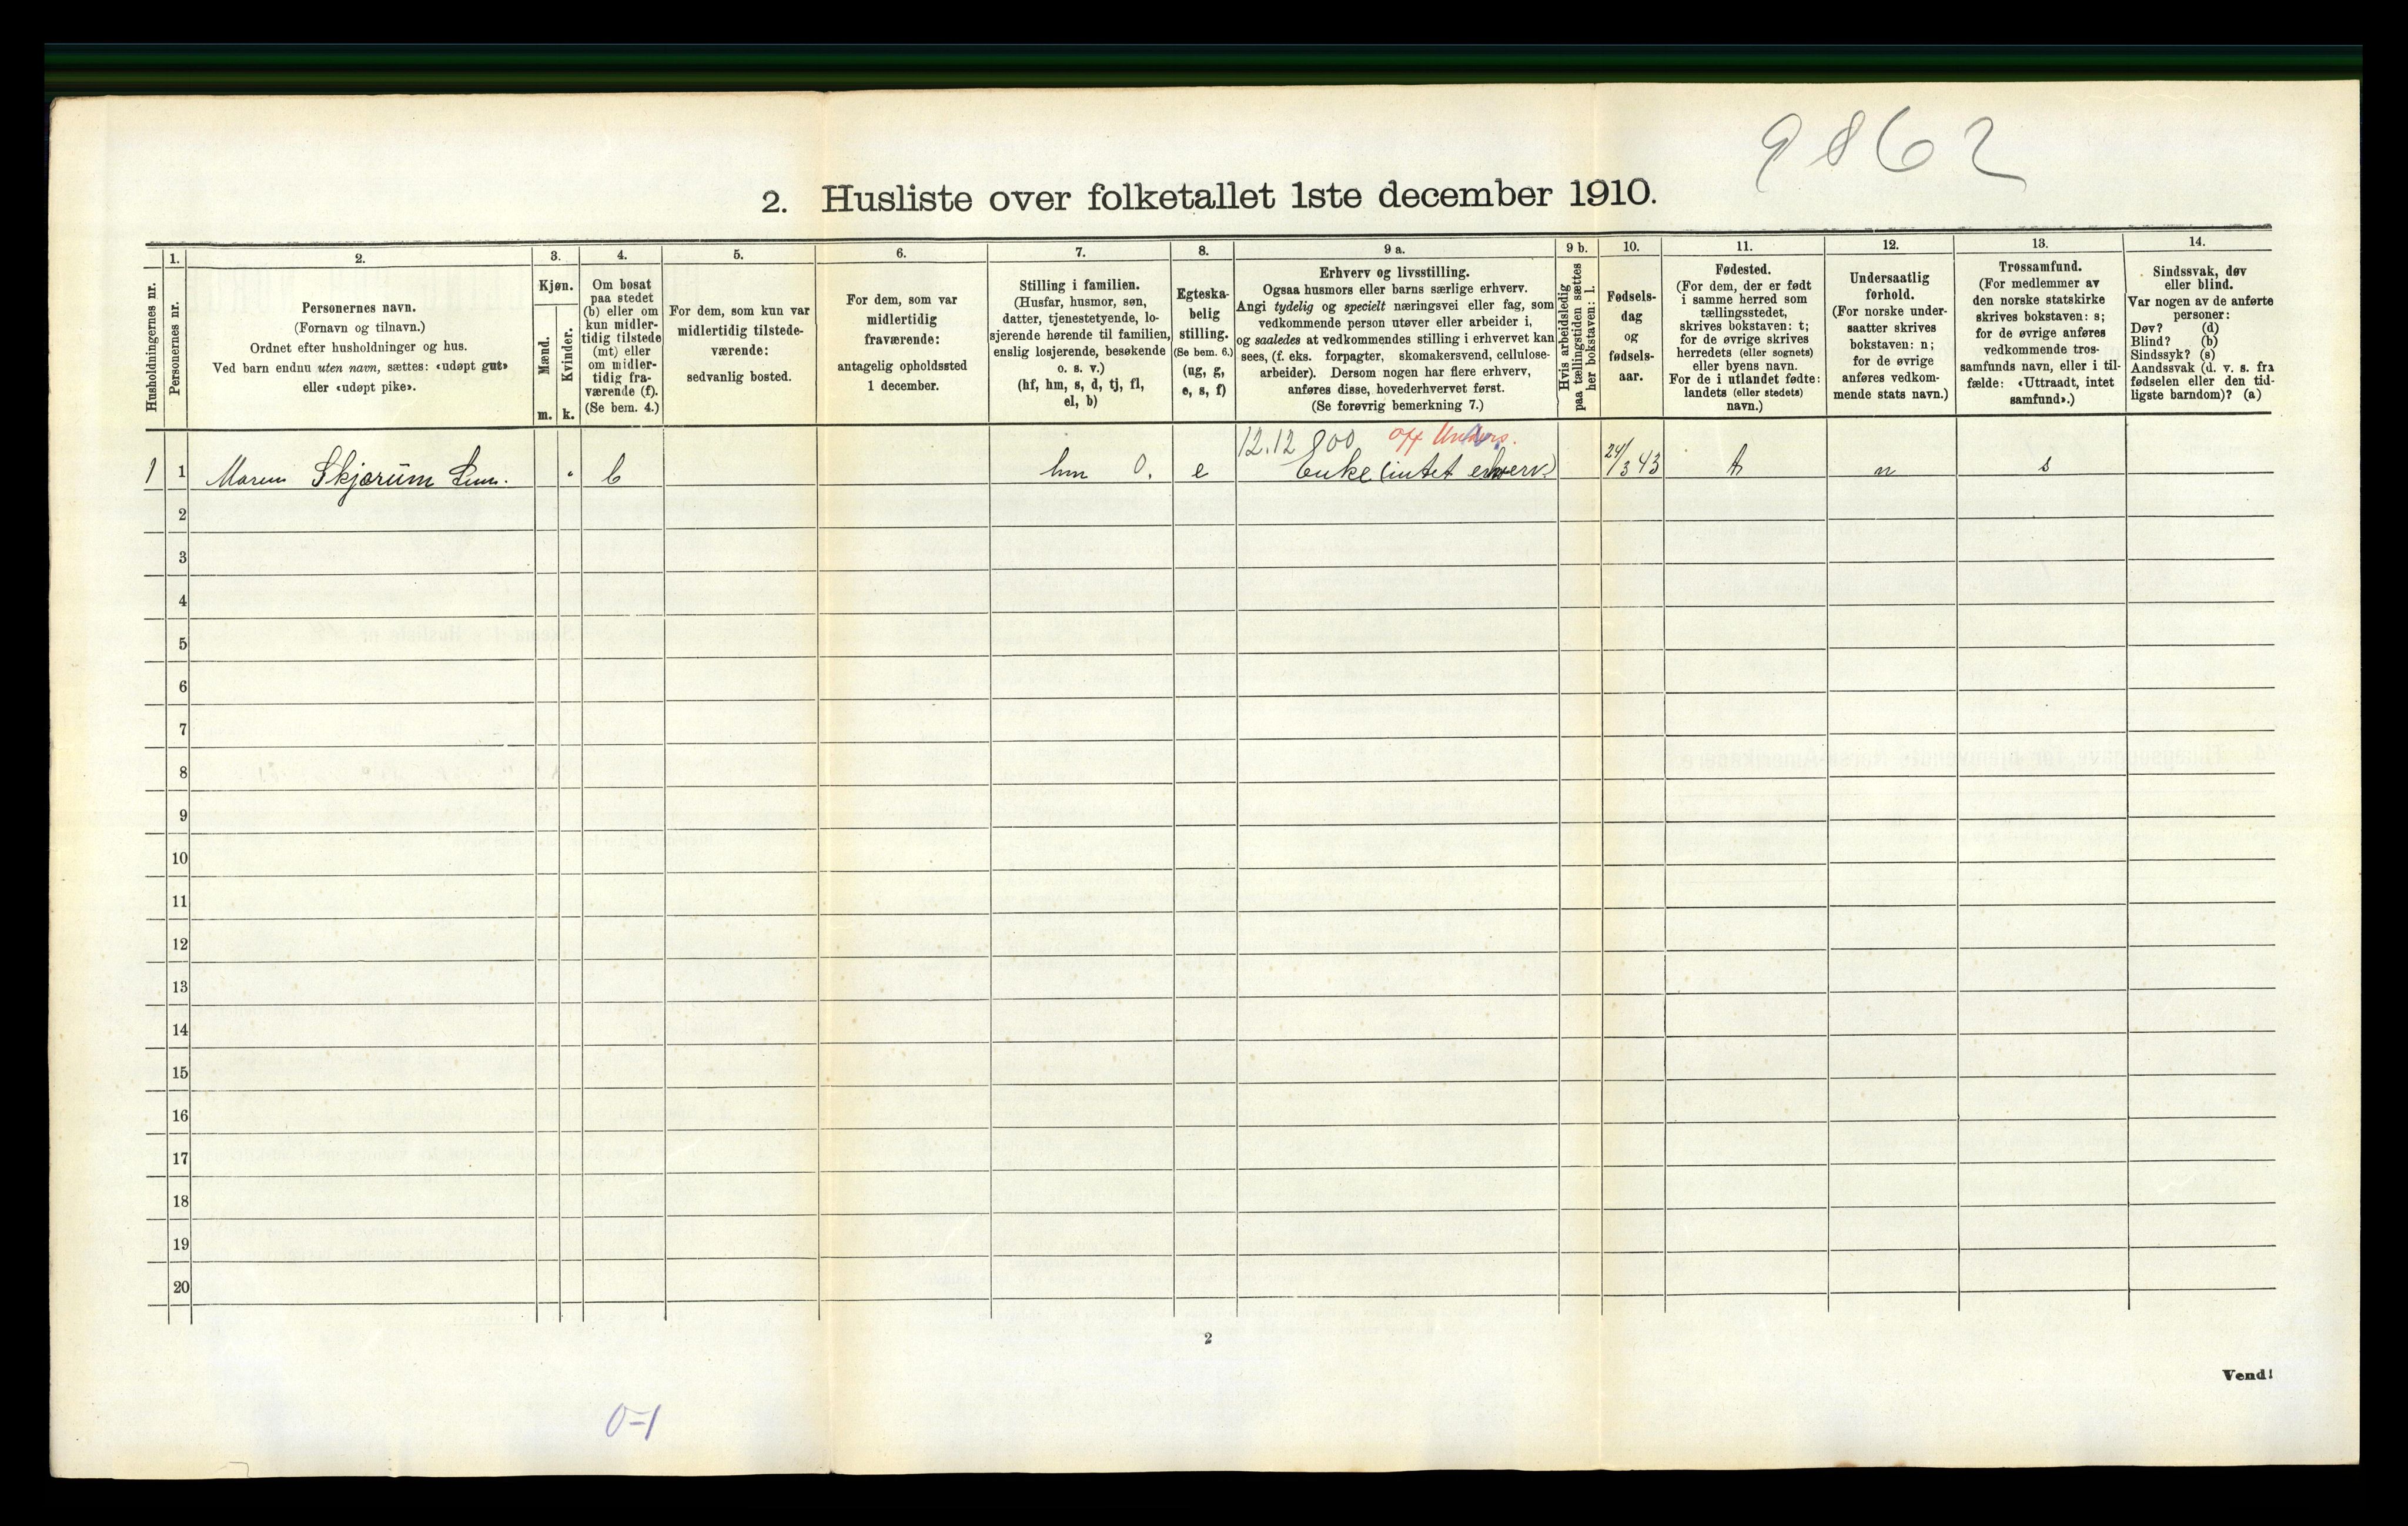 9862
2. Husliste over folketallet 1ste december 1910.
Husholdningernes nr.
1.
Personernes nr.
2.
Personernes navn.
(Fornavn og tilnavn.)
Ordnet efter husholdninger og hus.
Ved barn endnu uten navn, sættes: «udøpt gut»
eller «udøpt pike».
3.
Kjøn.
Mænd.
Kvinder.
m. k.
4.
Om bosat
paa stedet
(b) eller om
kun midler-
tidig tilstede
(mt) eller
om midler-
tidig fra-
værende (f).
(Se bem. 4.)
5.
For dem, som kun var
midlertidig tilstede-
værende:
sedvanlig bosted.
6.
For dem, som var
midlertidig
fraværende:
antagelig opholdssted
1 december.
7.
Stilling i familien.
(Husfar, husmor, søn,
datter, tjenestetyende, lo-
sjerende hørende til familien,
enslig losjerende, besøkende
o. s. v.)
(hf, hm, s, d, tj, fl,
el, b)
8.
Egteska-
belig
stilling.
(Se bem. 6.)
(ug, g,
e, s, f)
9 a.
Erhverv og livsstilling.
Ogsaa husmors eller barns særlige erhverv.
Angi tydelig og specielt næringsvei eller fag, som
vedkommende person utøver eller arbeider i,
og saaledes at vedkommendes stilling i erhvervet kan
sees, (f. eks. forpagter, skomakersvend, cellulose-
arbeider). Dersom nogen har flere erhverv,
anføres disse, hovederhvervet først.
(Se forøvrig bemerkning 7.)
9 b.
Hvis arbeidsledig
paa tællingstiden sættes
her bokstaven: l.
10.
Fødsels-
dag
og
fødsels-
aar.
11.
Fødested.
(For dem, der er født
i samme herred som
tællingsstedet,
skrives bokstaven: t;
for de øvrige skrives
herredets (eller sognets)
eller byens navn.
For de i utlandet fødte:
landets (eller stedets)
navn.)
12.
Undersaatlig
forhold.
(For norske under-
saatter skrives
bokstaven: n;
for de øvrige
anføres vedkom-
mende stats navn.)
13.
Trossamfund.
(For medlemmer av
den norske statskirke
skrives bokstaven: s;
for de øvrige anføres
vedkommende tros-
samfunds navn, eller i til-
fælde: «Uttraadt, intet
samfund».)
14.
Sindssvak, døv
eller blind.
Var nogen av de anførte
personer:
Døv? (d)
Blind? (b)
Sindssyk? (s)
Aandssvak (d. v. s. fra
fødselen eller den tid-
ligste barndom)? (a)
12.12 900. off Unders.
1 1 Maren Skjørum b hm 0. e Enke (intet erhverv) 24/3 43 t n s
2
3
4
5
6
7
8
9
10
11
12
13
14
15
16
17
18
19
20
2
Vend!
0=1